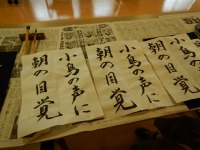 小鳥の声に
朝の目覚
小鳥の声に
朝の目覚
小鳥の声に
朝の目覚